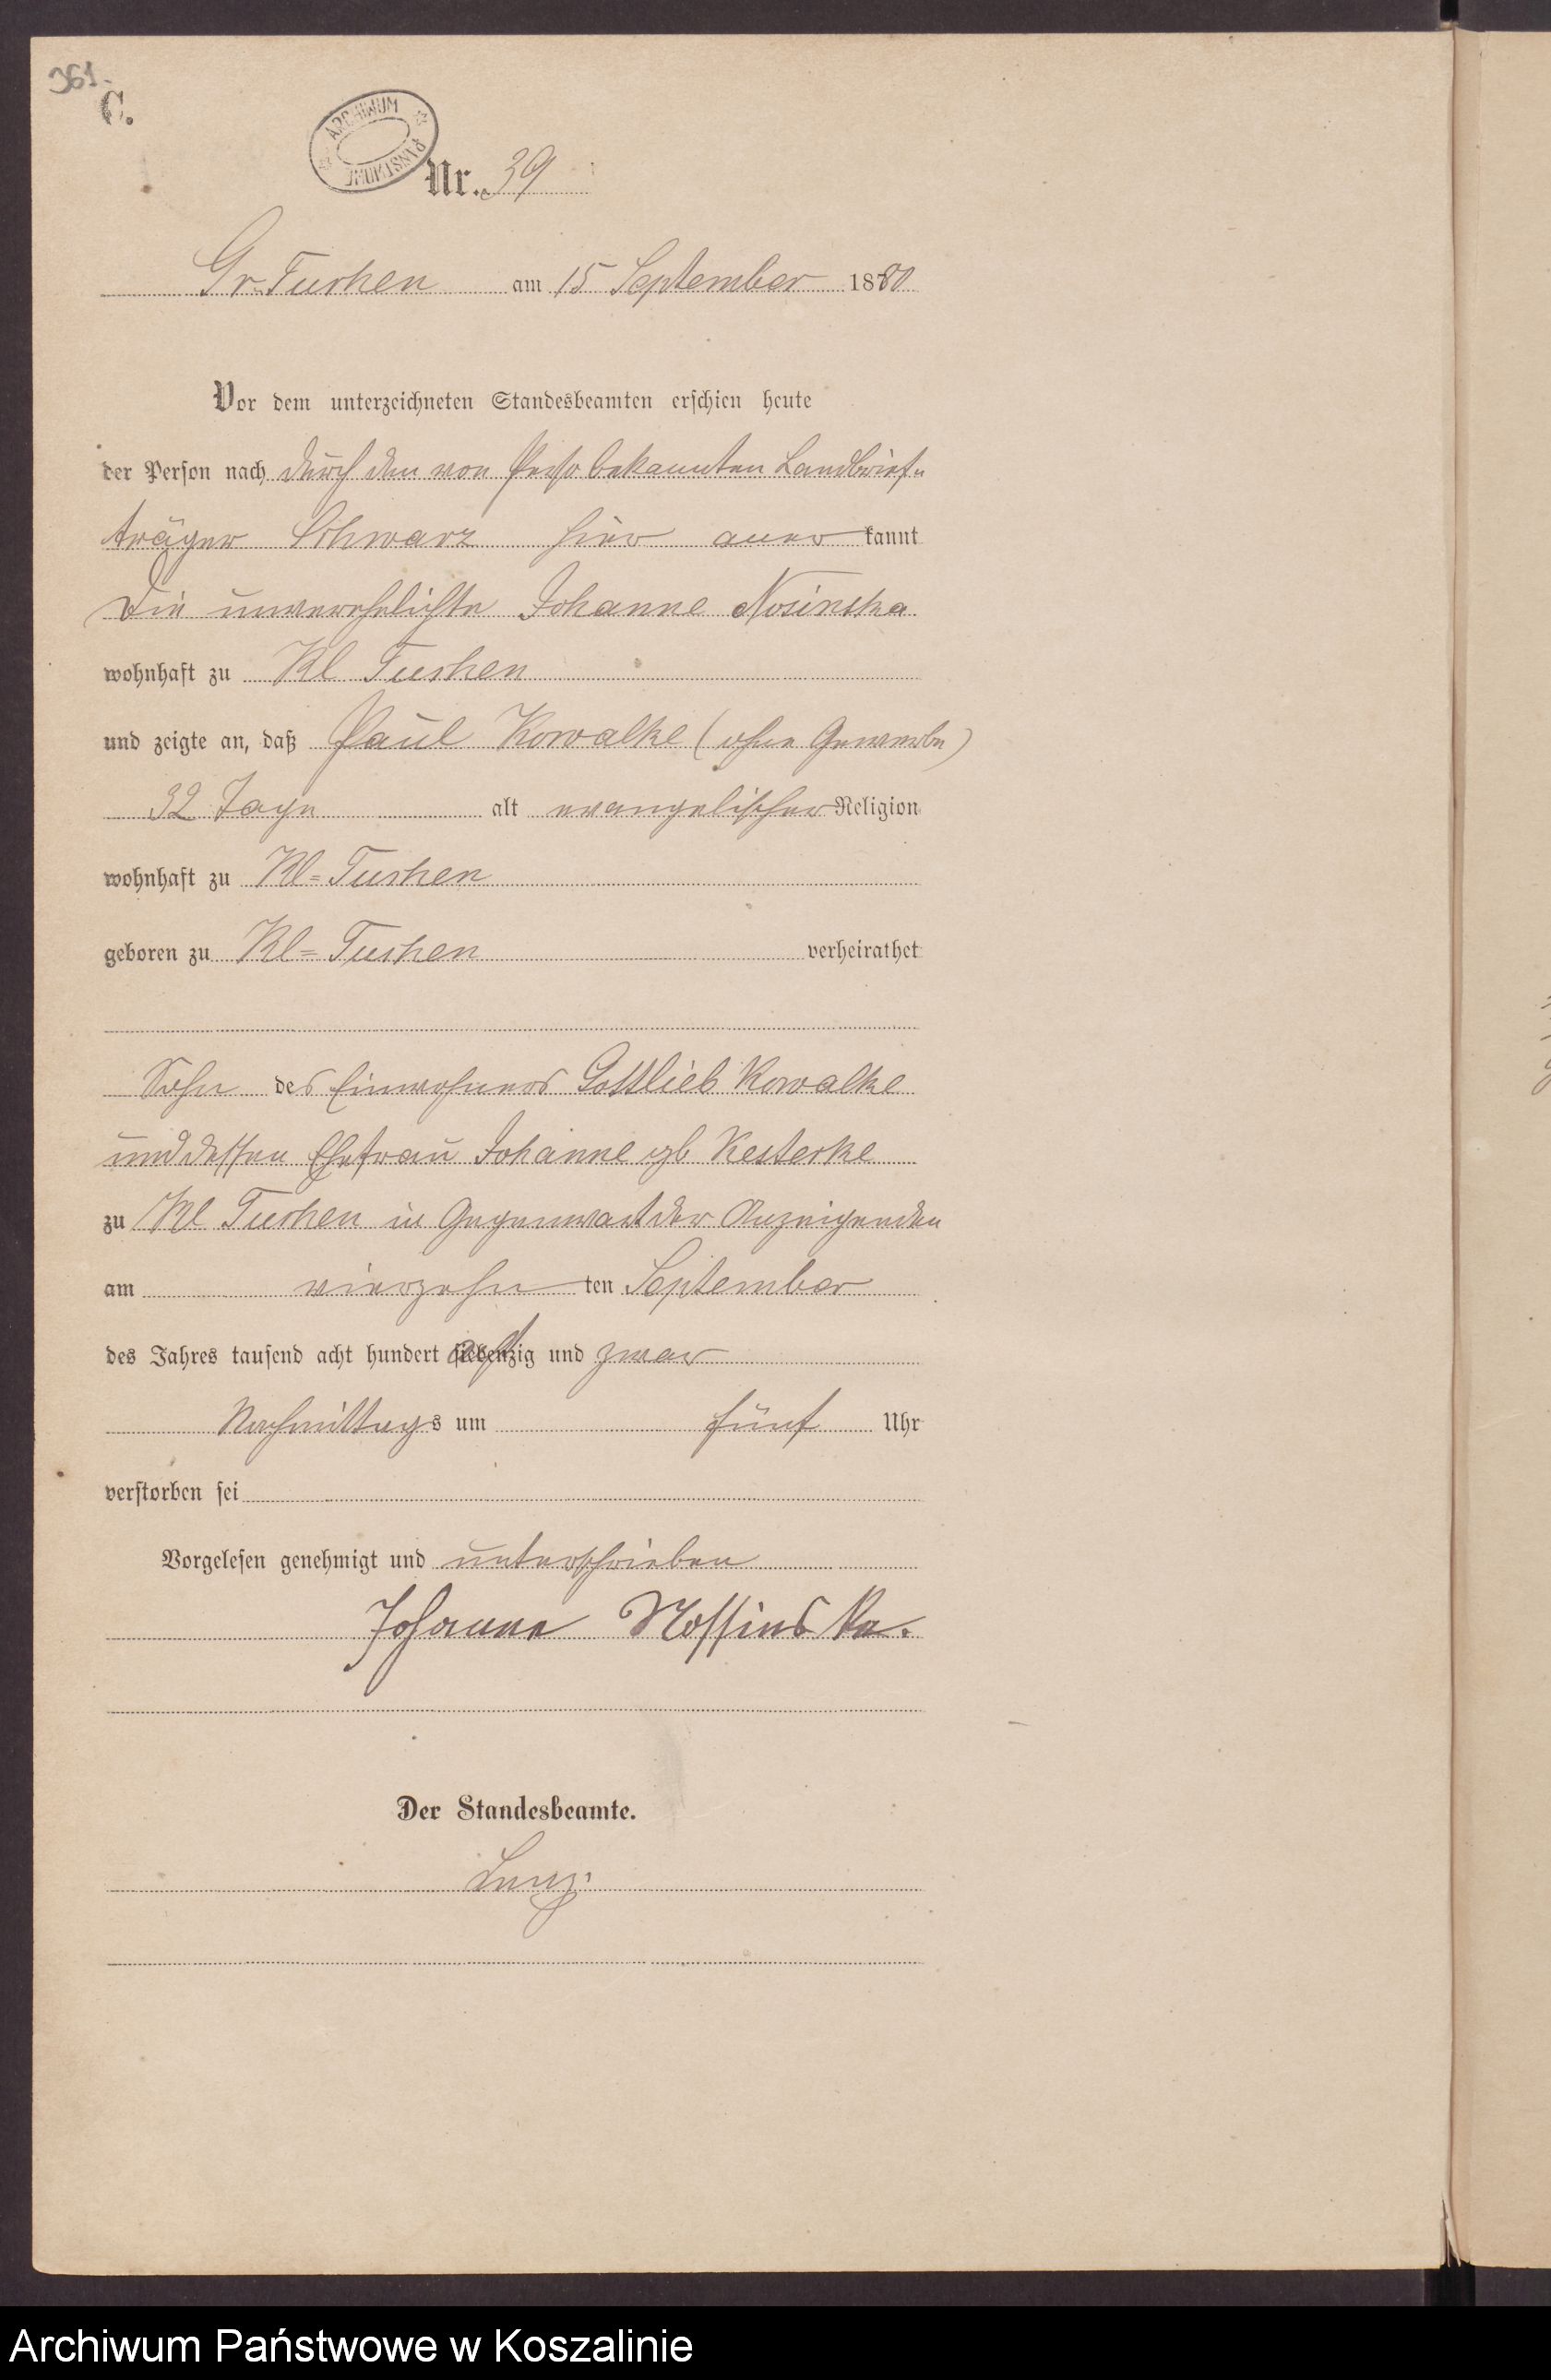 361.
C.
ARCHIWUM PAŃSTWOWE
Nr. 39
Gr. Tuchen am 15 September 1880
Vor dem unterzeichneten Standesbeamten erschien heute
der Person nach durch den von Person bekannten Landbrief-
träger Schwarz hier aner kannt
Die unverehelichte Johanne Nosinska
wohnhaft zu Kl Tuchen
und zeigte an, daß Paul Kowalke (ohne Gewerbe)
32 Tage alt evangelischer Religion
wohnhaft zu Kl=Tuchen
geboren zu Kl=Tuchen verheirathet
Sohn des Einwohners Gottlieb Kowalke
und dessen Ehefrau Johanne gb Kesterke
zu Kl Tuchen in Gegenwart der Anzeigenden
am vierzehn ten September
des Jahres tausend acht hundert achtzig und zwar
Nachmittags um fünf Uhr
verstorben sei
Vorgelesen genehmigt und unterschrieben
Johanna Nossinska.
Der Standesbeamte.
Lenz.
Archiwum Państwowe w Koszalinie